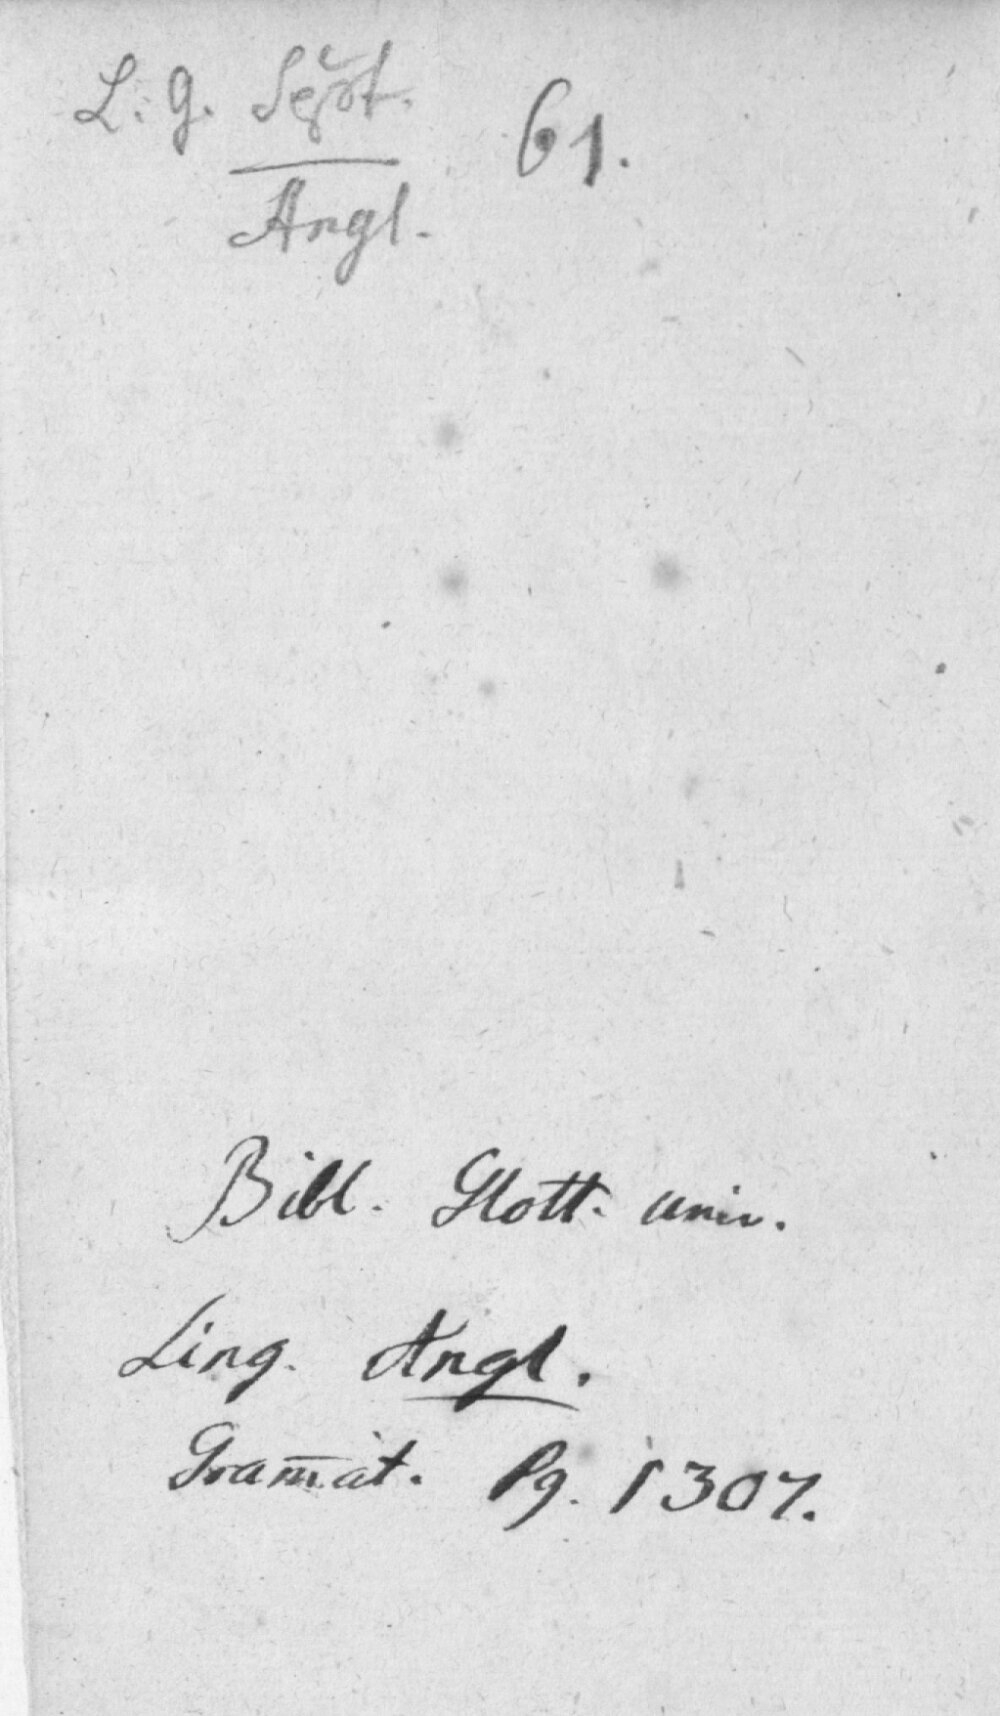 L. g. Sept. 61.
Angl.
Bibl. Glott. univ.
Ling. Angl.
Gram̄at. Pg. 1307.